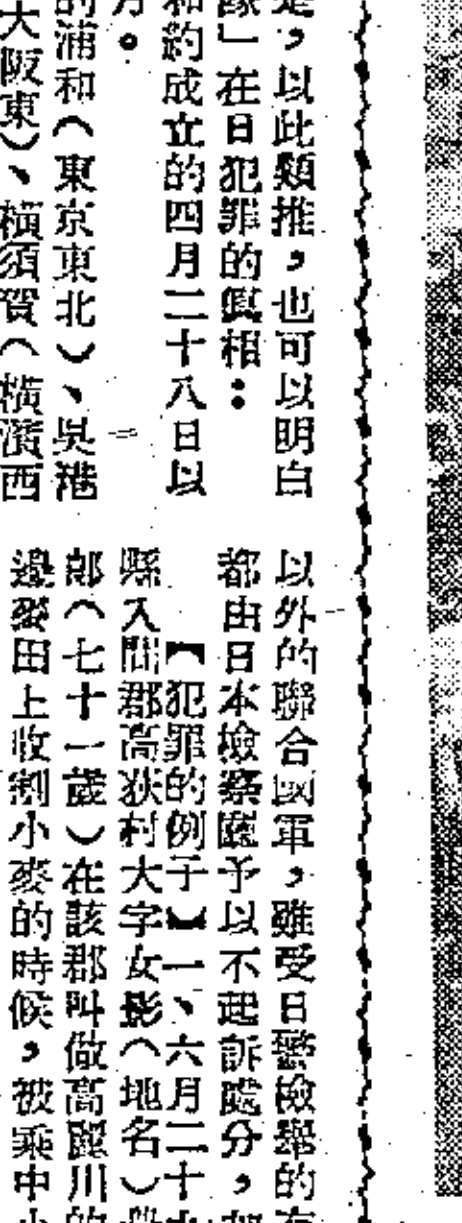 是,以此類推,也可以明白
緣」在日犯罪的眞相:
和約成立的四月二十八日以
月。
的浦和(東京東北)、吳港
大阪東)、橫須賀(橫濱西
以外的聯合國軍,雖受日警檢舉的有
都由日本檢察廳予以不起訴處分,都
【犯罪的例子】一、六月二十
縣入間郡高荻村大字女影(地名)農
郎(七十一歲)在該郡叫做高麗川的
邊麥田上收割小麥的時候,被乘中小